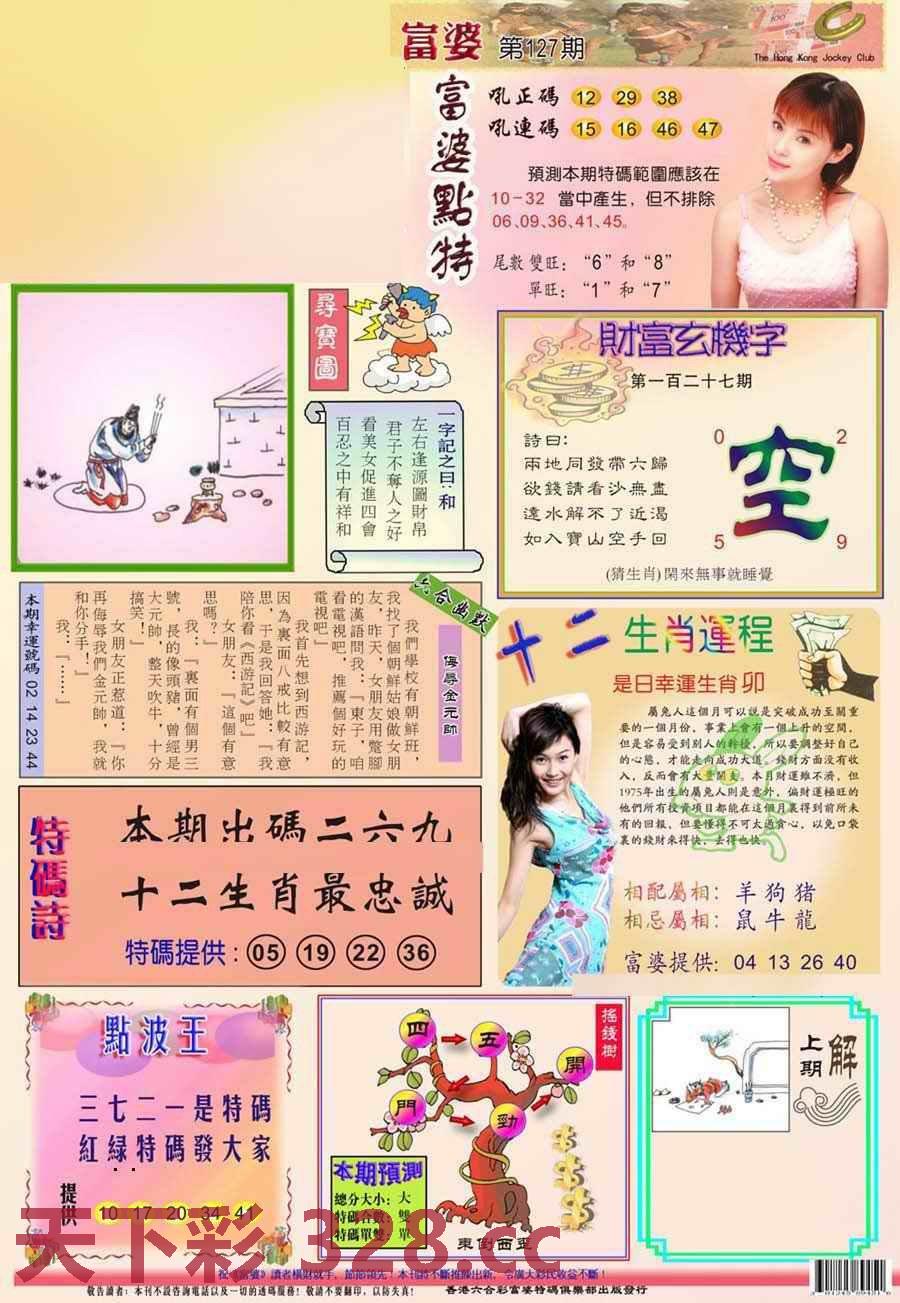 富婆 第127期
The Hong Kong Jockey Club
富婆點特
吼正碼 12 29 38
吼連碼 15 16 46 47
預測本期特碼範圍應該在
10－32 當中產生，但不排除
06、09、36、41、45。
尾數雙旺：“6”和“8”
單旺：“1”和“7”
尋寶圖
一字記之曰：和
左右逢源圖財帛
君子不奪人之好
看美女促進四會
百忍之中有祥和
財富玄機字
第一百二十七期
詩曰：
兩地同發帶六歸
欲錢請看沙無盡
遠水解不了近渴
如入寶山空手回
0 2
空
5 9
(猜生肖)閑來無事就睡覺
六合幽默
侮辱金元帥
我們學校有朝鮮班，
我找了個朝鮮姑娘做女朋
友，昨天，女朋友用蹩腳
的漢語問我：『東子，咱
看電視吧，推薦個好玩的
電視吧』
我首先想到西游記，
因為裏面八戒比較有意
思，于是我回答她：『我
陪你看《西游記》吧』
女朋友：『這個有意
思嗎？』
我：『裏面有個男三
號，長的像頭豬，曾經是
大元帥，整天吹牛，十分
搞笑！』
女朋友正惹道：『你
再侮辱我們金元帥，我就
和你分手！』
我：『……』
本期幸運號碼 02 14 23 44
十二生肖運程
是日幸運生肖 卯
屬兔人這個月可以說是突破成功至關重
要的一個月份，事業上會有一個上升的空間，
但是容易受到別人的幹擾，所以要調整好自己
的心態，才能走向成功大道。錢財方面沒有收
入，反而會有大量開支。本月財運雖不濟，但
1975年出生的屬兔人則是意外，偏財運極旺的
他們所有投資項目都能在這個月裏得到前所未
有的回報，但要懂得不可太過貪心，以免口袋
裏的錢財來得快，去得也快。
相配屬相：羊 狗 猪
相忌屬相：鼠 牛 龍
富婆提供：04 13 26 40
特碼詩
本期出碼二六九
十二生肖最忠誠
特碼提供：05 19 22 36
點波王
三七二一是特碼
紅綠特碼發大家
提供 10 17 20 34 41
搖錢樹
四 五 開
門 勁
本期預測
總分大小：大
特碼合數：雙
特碼單雙：單
東倒西歪
上期解
天下彩 328.cc
祝《富婆》讀者橫財就手，節節領先！本刊將不斷推陳出新，令廣大彩民收益不斷！
敬告讀者：本刊不設咨詢電話以及一切的透碼服務！敬請不要翻印，以防失真！
香港六合彩富婆特碼俱樂部出版發行